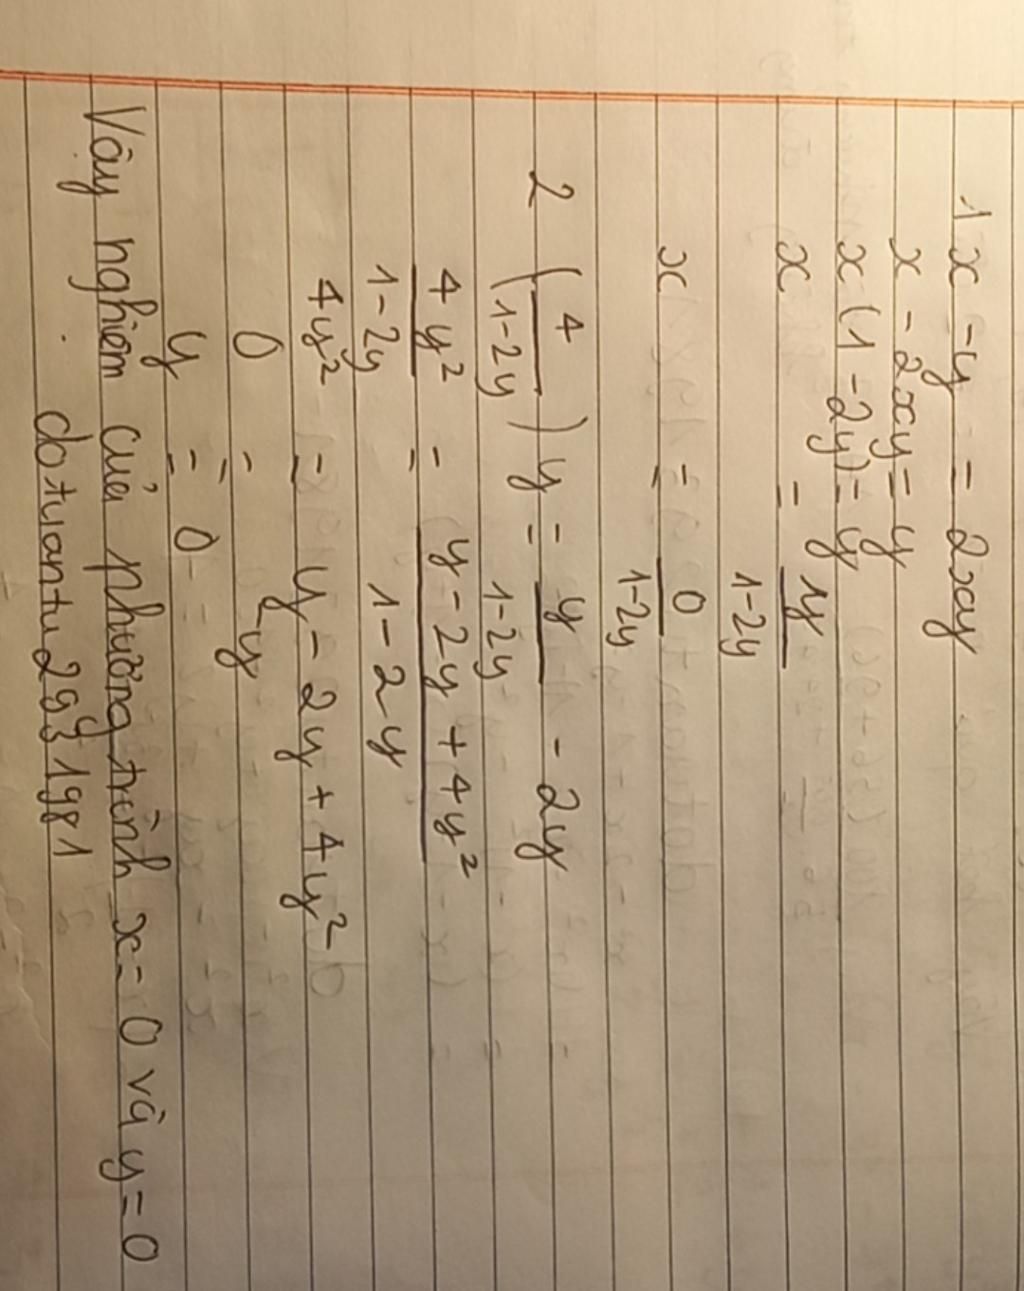 1 x - y = 2xy
x - 2xy = y
x (1 - 2y) = y
x = y
1-2y
x = 0
1-2y
2 ( 4 ) y = y - 2y
1-2y 1-2y
4y² = y - 2y + 4y²
1-2y 1-2y
4y² = y - 2y + 4y²
0 = -y
y = 0
Vây nghiệm của phương trình x = 0 và y = 0
dotuantu2931981